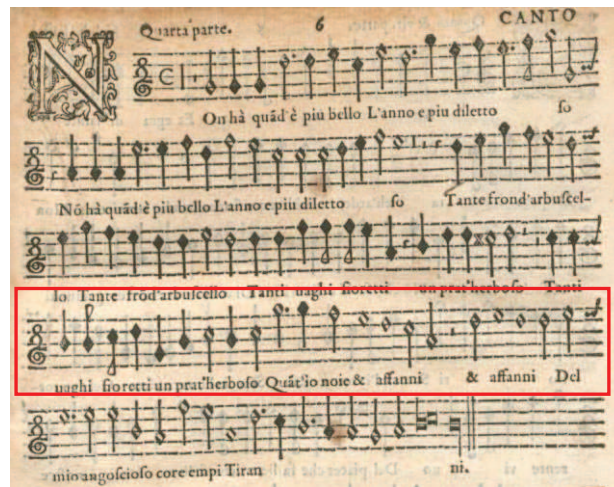 Quarta parte. 6 CANTO
NOn hà quãd'è piu bello L'anno e piu diletto so
Nõ hà quãd'è piu bello L'anno e piu diletto so Tante frond'arbuscel-
lo Tante frõd'arbuscello Tanti uaghi fioretti un prat'herboso Tanti
uaghi fioretti un prat'herboso Quãt'io noie & affanni & affanni Del
mio angoscioso core empi Tiran ni.